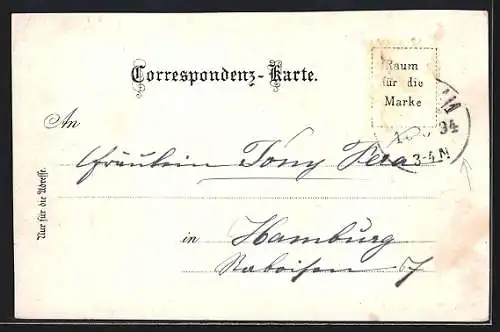 Correspondenz-Karte.
Raum
für die
Marke
94
3-4 N
An
Fräulein Tony
in Hamburg
Raboisen 67
Nur für die Adresse.